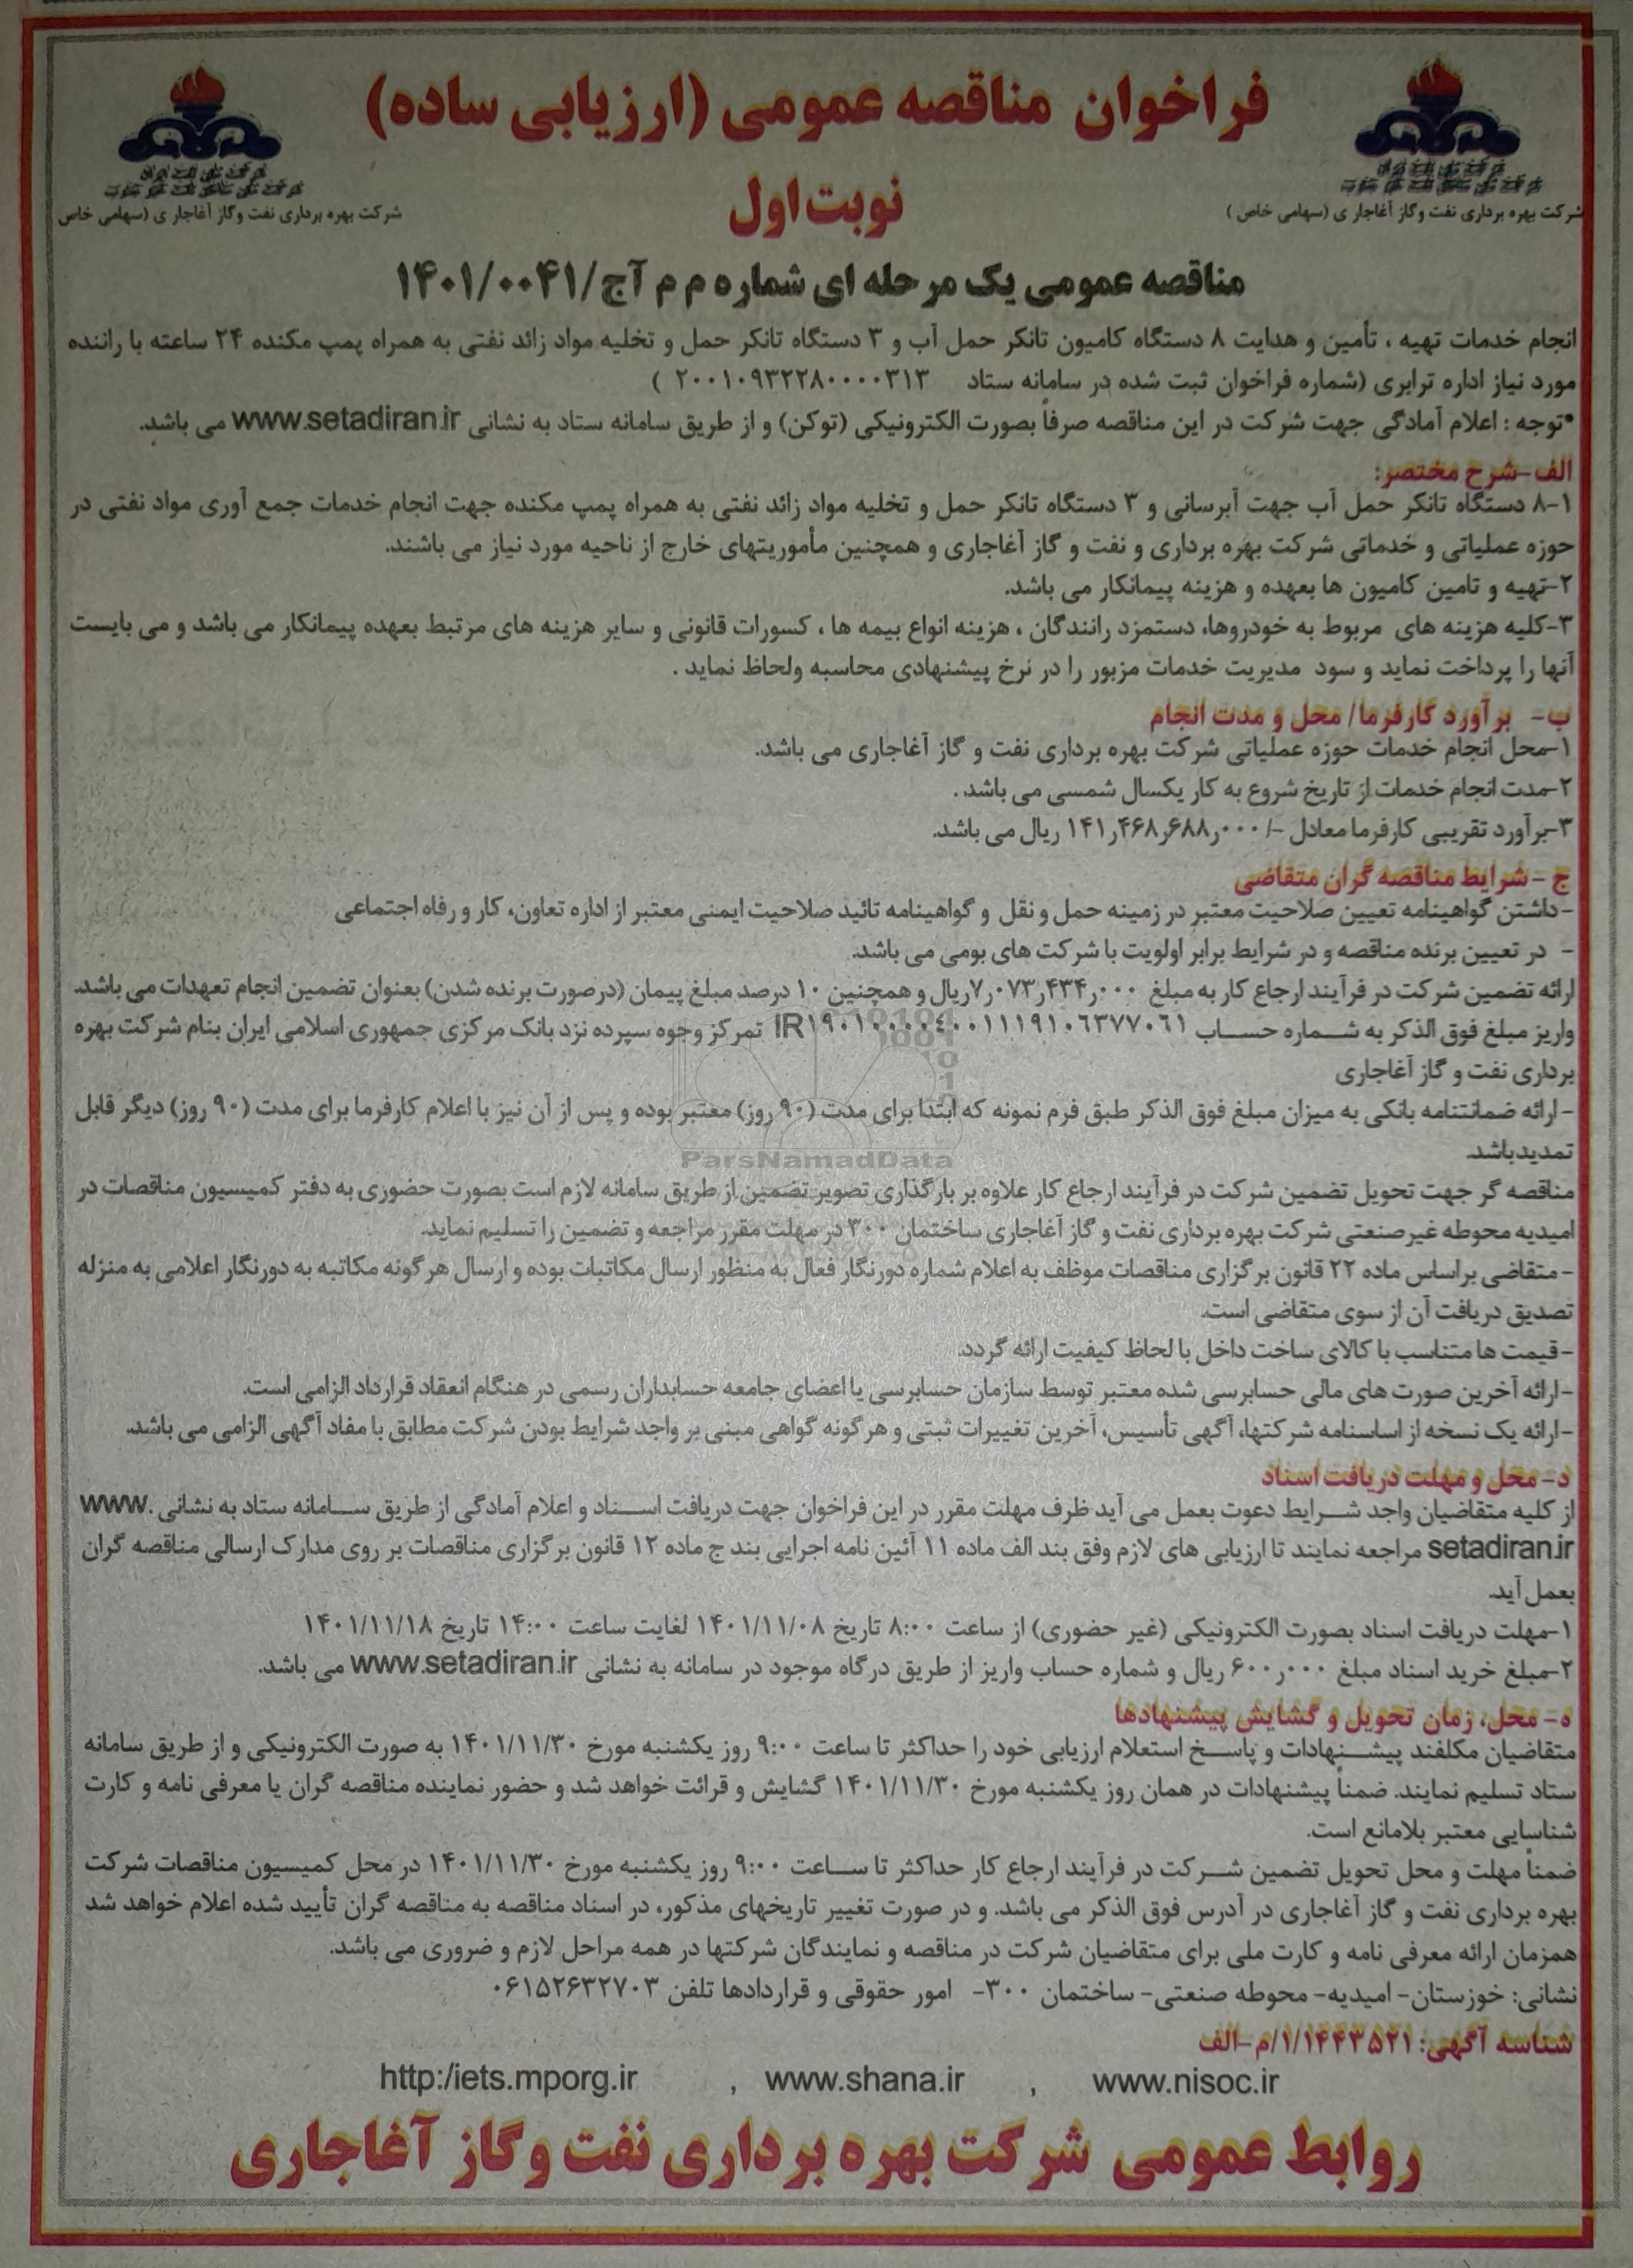 فراخوان مناقصه عمومی (ارزیابی ساده)
نوبت اول
شرکت بهره برداری نفت وگاز آغاجار ی (سهامی خاص )
شرکت بهره برداری نفت وگاز آغاجار ی (سهامی خاص
مناقصه عمومی یک مرحله ای شماره م م آج/۱۴۰۱/۰۰۴۱
انجام خدمات تهیه ، تأمین و هدایت ۸ دستگاه کامیون تانکر حمل آب و ۳ دستگاه تانکر حمل و تخلیه مواد زائد نفتی به همراه پمپ مکنده ۲۴ ساعته با راننده
مورد نیاز اداره ترابری (شماره فراخوان ثبت شده در سامانه ستاد ۲۰۰۱۰۹۳۲۲۸۰۰۰۰۳۱۳ )
*توجه : اعلام آمادگی جهت شرکت در این مناقصه صرفاً بصورت الکترونیکی (توکن) و از طریق سامانه ستاد به نشانی www.setadiran.ir می باشد.
الف-شرح مختصر:
۱-۸ دستگاه تانکر حمل آب جهت آبرسانی و ۳ دستگاه تانکر حمل و تخلیه مواد زائد نفتی به همراه پمپ مکنده جهت انجام خدمات جمع آوری مواد نفتی در
حوزه عملیاتی و خدماتی شرکت بهره برداری و نفت و گاز آغاجاری و همچنین مأموریتهای خارج از ناحیه مورد نیاز می باشند.
۲-تهیه و تامین کامیون ها بعهده و هزینه پیمانکار می باشد.
۳-کلیه هزینه های مربوط به خودروها، دستمزد رانندگان ، هزینه انواع بیمه ها ، کسورات قانونی و سایر هزینه های مرتبط بعهده پیمانکار می باشد و می بایست
آنها را پرداخت نماید و سود مدیریت خدمات مزبور را در نرخ پیشنهادی محاسبه ولحاظ نماید .
ب- برآورد کارفرما/ محل و مدت انجام
۱-محل انجام خدمات حوزه عملیاتی شرکت بهره برداری نفت و گاز آغاجاری می باشد.
۲-مدت انجام خدمات از تاریخ شروع به کار یکسال شمسی می باشد .
۳-برآورد تقریبی کارفرما معادل -/۱۴۱ر۴۶۸ر۶۸۸ر۰۰۰ ریال می باشد.
ج -شرایط مناقصه گران متقاضی
-داشتن گواهینامه تعیین صلاحیت معتبر در زمینه حمل و نقل و گواهینامه تائید صلاحیت ایمنی معتبر از اداره تعاون، کار و رفاه اجتماعی
- در تعیین برنده مناقصه و در شرایط برابر اولویت با شرکت های بومی می باشد.
ارائه تضمین شرکت در فرآیند ارجاع کار به مبلغ ۷ر۰۷۳ر۴۳۴ر۰۰۰ریال و همچنین ۱۰ درصد مبلغ پیمان (درصورت برنده شدن) بعنوان تضمین انجام تعهدات می باشد.
واریز مبلغ فوق الذکر به شماره حساب IR۱۹۰۱۰۰۰۰٤۰۰۱۱۱۹۱۰٦۳۷۷۰٦۱ تمرکز وجوه سپرده نزد بانک مرکزی جمهوری اسلامی ایران بنام شرکت بهره
برداری نفت و گاز آغاجاری
-ارائه ضمانتنامه بانکی به میزان مبلغ فوق الذکر طبق فرم نمونه که ابتدا برای مدت (۹۰ روز) معتبر بوده و پس از آن نیز با اعلام کارفرما برای مدت (۹۰ روز) دیگر قابل
تمدیدباشد.
مناقصه گر جهت تحویل تضمین شرکت در فرآیند ارجاع کار علاوه بر بارگذاری تصویر تضمین از طریق سامانه لازم است بصورت حضوری به دفتر کمیسیون مناقصات در
امیدیه محوطه غیرصنعتی شرکت بهره برداری نفت و گاز آغاجاری ساختمان ۳۰۰ در مهلت مقرر مراجعه و تضمین را تسلیم نماید.
-متقاضی براساس ماده ۲۲ قانون برگزاری مناقصات موظف به اعلام شماره دورنگار فعال به منظور ارسال مکاتبات بوده و ارسال هرگونه مکاتبه به دورنگار اعلامی به منزله
تصدیق دریافت آن از سوی متقاضی است.
-قیمت ها متناسب با کالای ساخت داخل با لحاظ کیفیت ارائه گردد.
-ارائه آخرین صورت های مالی حسابرسی شده معتبر توسط سازمان حسابرسی یا اعضای جامعه حسابداران رسمی در هنگام انعقاد قرارداد الزامی است.
-ارائه یک نسخه از اساسنامه شرکتها، آگهی تأسیس، آخرین تغییرات ثبتی و هرگونه گواهی مبنی بر واجد شرایط بودن شرکت مطابق با مفاد آگهی الزامی می باشد.
د-محل و مهلت دریافت اسناد
از کلیه متقاضیان واجد شرایط دعوت بعمل می آید ظرف مهلت مقرر در این فراخوان جهت دریافت اسناد و اعلام آمادگی از طریق سامانه ستاد به نشانی www.
setadiran.ir مراجعه نمایند تا ارزیابی های لازم وفق بند الف ماده ۱۱ آئین نامه اجرایی بند ج ماده ۱۲ قانون برگزاری مناقصات بر روی مدارک ارسالی مناقصه گران
بعمل آید.
۱-مهلت دریافت اسناد بصورت الکترونیکی (غیر حضوری) از ساعت ۸:۰۰ تاریخ ۱۴۰۱/۱۱/۰۸ لغایت ساعت ۱۴:۰۰ تاریخ ۱۴۰۱/۱۱/۱۸
۲-مبلغ خرید اسناد مبلغ ۶۰۰ر۰۰۰ ریال و شماره حساب واریز از طریق درگاه موجود در سامانه به نشانی www.setadiran.ir می باشد.
ه- محل، زمان تحویل و گشایش پیشنهادها
متقاضیان مکلفند پیشنهادات و پاسخ استعلام ارزیابی خود را حداکثر تا ساعت ۹:۰۰ روز یکشنبه مورخ ۱۴۰۱/۱۱/۳۰ به صورت الکترونیکی و از طریق سامانه
ستاد تسلیم نمایند. ضمناً پیشنهادات در همان روز یکشنبه مورخ ۱۴۰۱/۱۱/۳۰ گشایش و قرائت خواهد شد و حضور نماینده مناقصه گران یا معرفی نامه و کارت
شناسایی معتبر بلامانع است.
ضمناً مهلت و محل تحویل تضمین شرکت در فرآیند ارجاع کار حداکثر تا ساعت ۹:۰۰ روز یکشنبه مورخ ۱۴۰۱/۱۱/۳۰ در محل کمیسیون مناقصات شرکت
بهره برداری نفت و گاز آغاجاری در آدرس فوق الذکر می باشد. و در صورت تغییر تاریخهای مذکور، در اسناد مناقصه به مناقصه گران تأیید شده اعلام خواهد شد
همزمان ارائه معرفی نامه و کارت ملی برای متقاضیان شرکت در مناقصه و نمایندگان شرکتها در همه مراحل لازم و ضروری می باشد.
نشانی: خوزستان- امیدیه- محوطه صنعتی- ساختمان ۳۰۰- امور حقوقی و قراردادها تلفن ۰۶۱۵۲۶۳۲۷۰۳
شناسه آگهی: ۱/۱۴۴۳۵۲۱/م-الف
www.nisoc.ir , www.shana.ir , http:/iets.mporg.ir
روابط عمومی شرکت بهره برداری نفت وگاز آغاجاری
ParsNamadData